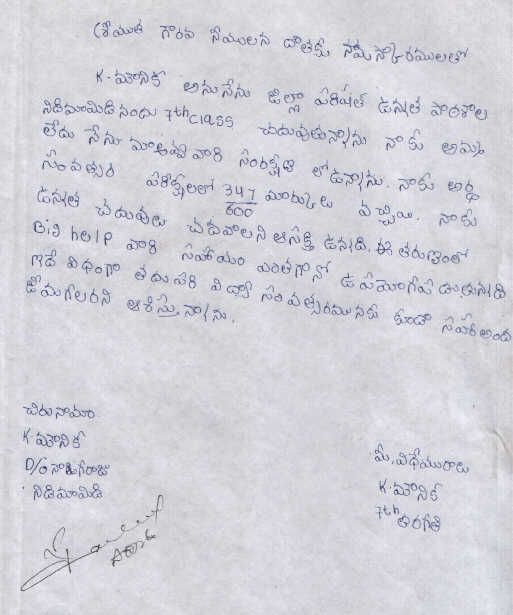 శ్రీయుత గౌరవ నీయులైన దాతకు నమస్కారములతో
K. మౌనిక అను నేను జిల్లా పరిషత్ ఉన్నత పాఠశాల
నిడిమామిడి నందు 7th class చదువుతున్నాను నాకు అమ్మ
లేదు నేను మా అవ్వ వారి సంరక్షణ లో ఉన్నాను. నాకు అర్ధ
సంవత్సర పరీక్షలలో 347/600 మార్కులు వచ్చాయి. నాకు
ఉన్నత చదువులు చదవాలని ఆసక్తి ఉన్నది. ఈ తరుణంలో
Big help వారి సహాయం ఎంతగానో ఉపయోగపడుతున్నది
ఇదే విధంగా తదుపరి విద్యా సంవత్సరమునకు కూడా సహాయ అంద
జేయగలరని ఆశిస్తున్నాను.
చిరునామా
K. మౌనిక
D/o నాగరాజు
నిడిమామిడి
మీ. విధేయురాలు
K. మౌనిక
7th తరగతి